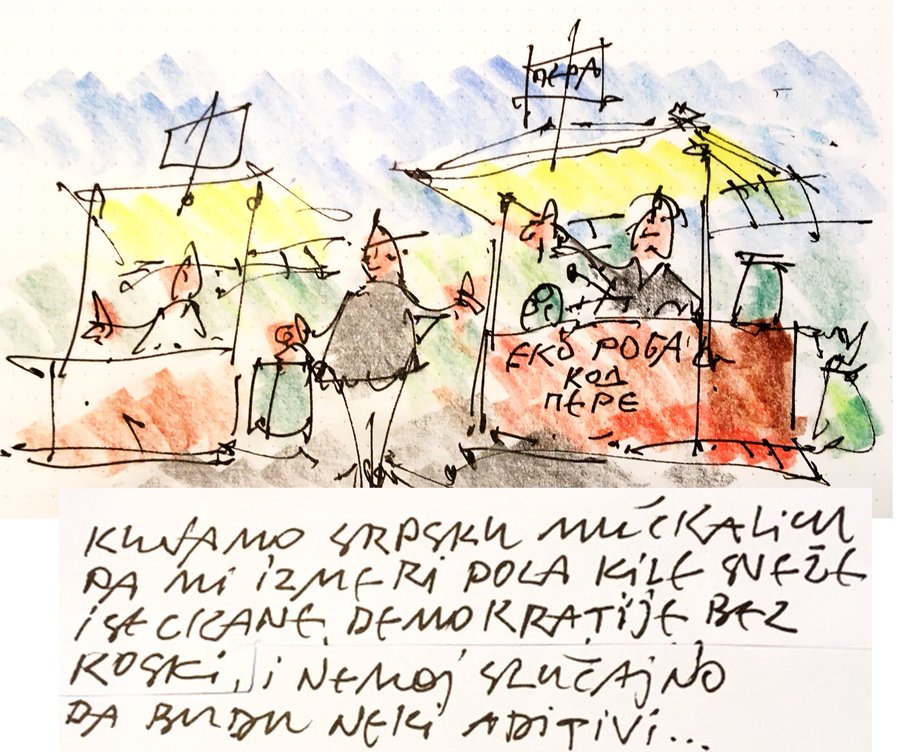 ПЕРА
ЕКО РОБА
КОД
ПЕРЕ
KUVAMO SRPSKU MUĆKALICU
PA MI IZMERI POLA KILE SVEŽE
ISECKANE DEMOKRATIJE BEZ
KOSKI, I NEMOJ SLUČAJNO
DA BUDU NEKI ADITIVI...